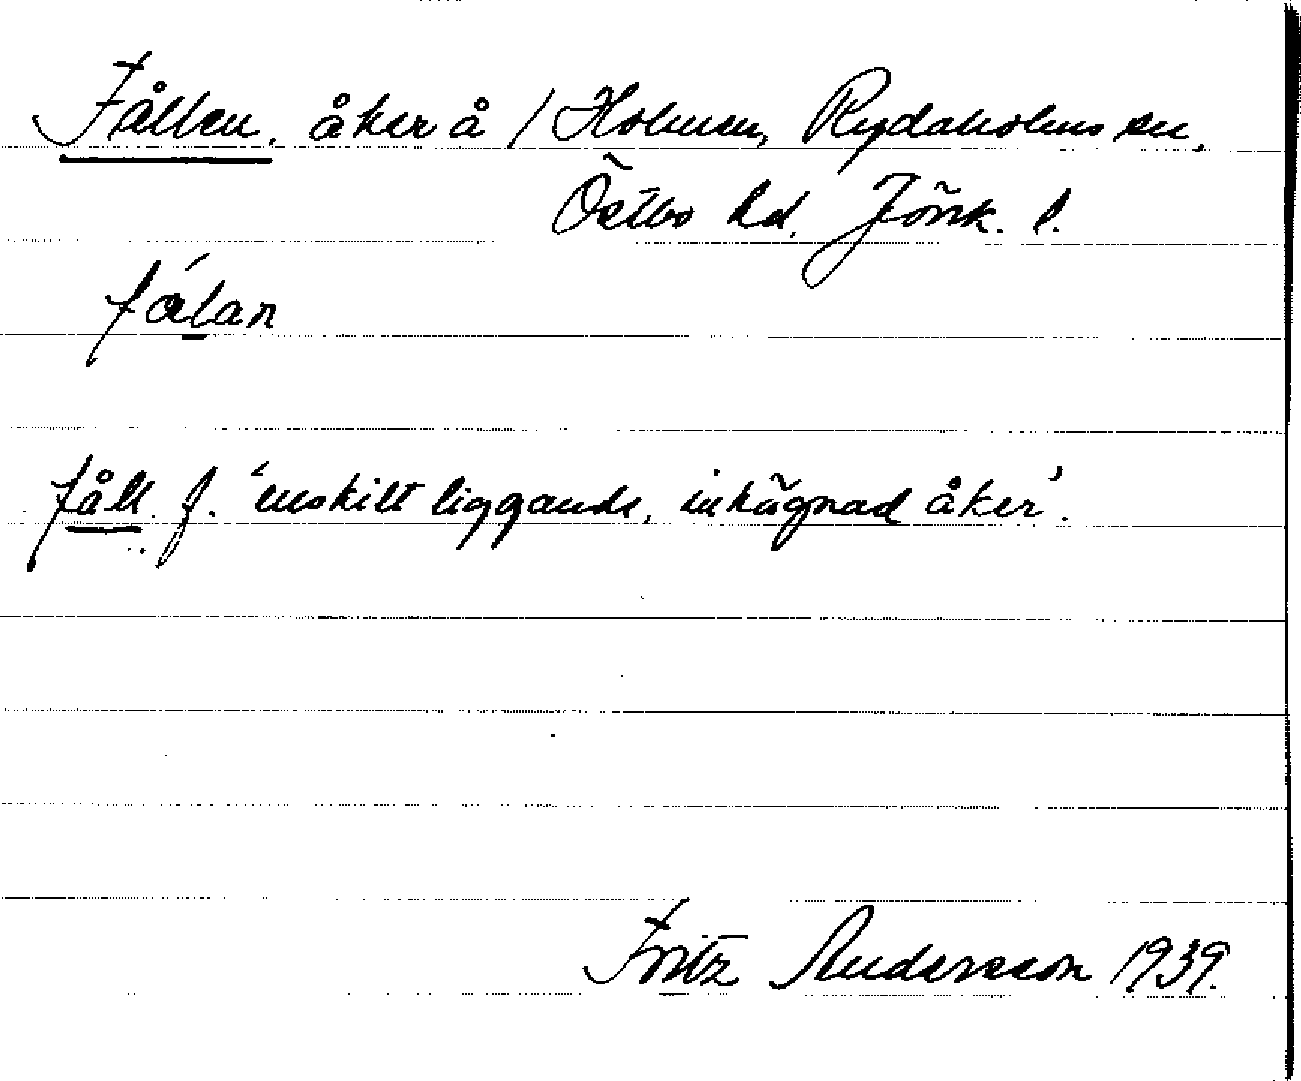 Fållen, åker å /Holmen, Rydaholms sn,
Östbo hd. Jönk. l.
fålan
fåll. f. 'enskilt liggande, inhägnad åker'.
Fritz Andersson 1939.